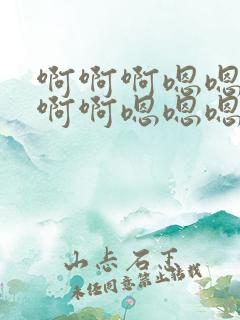 啊啊啊嗯嗯
啊啊嗯嗯嗯
山志石王
未经同意禁止转载